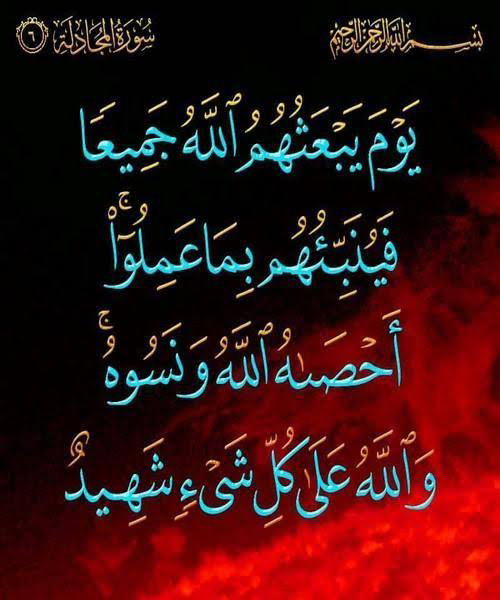 بسم الله الرحمن الرحيم
سُورَةُ المُجَادلَة ٦
يَوْمَ يَبْعَثُهُمُ ٱللَّهُ جَمِيعًا
فَيُنَبِّئُهُم بِمَا عَمِلُوٓا۟ ۚ
أَحْصَىٰهُ ٱللَّهُ وَنَسُوهُ ۚ
وَٱللَّهُ عَلَىٰ كُلِّ شَىْءٍ شَهِيدٌ